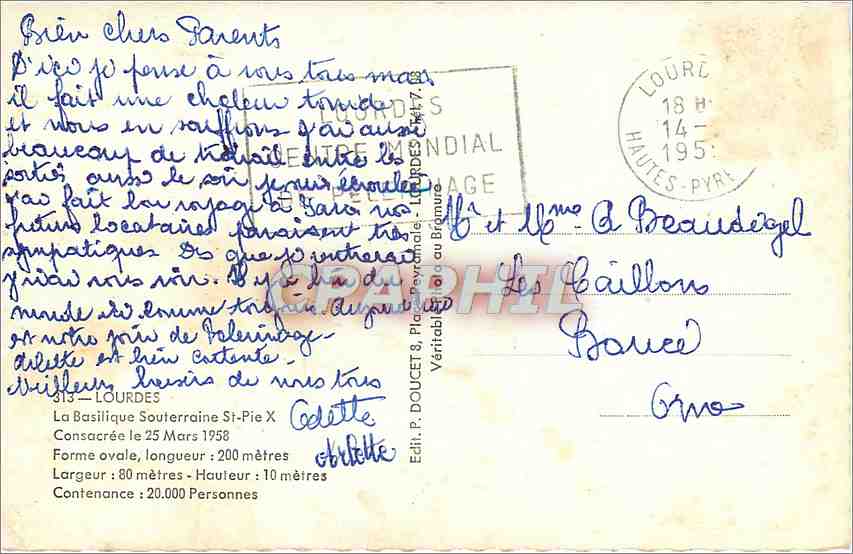 Bien chers Parents
D'ici je pense à vous tous mais
il fait une chaleur torride
et nous en souffrons j'ai aussi
beaucoup de travail entre les
sorties aussi le soir je suis écroulée
j'ai fait bon voyage à nos
futurs locataires paraissent très
sympatiques Dès que je rentrerai
j'irai vous voir. Il y a bien du
monde ici comme toujours Aujourd'hui
est notre jour de Pelerinage.
Arlette est bien contente.
Meilleurs baisers de nous tous
Odette
Arlette
313 — LOURDES
La Basilique Souterraine St-Pie X
Consacrée le 25 Mars 1958
Forme ovale, longueur : 200 mètres
Largeur : 80 mètres - Hauteur : 10 mètres
Contenance : 20.000 Personnes
LOURDES
CENTRE MONDIAL
DE PELERINAGE
Edit. P. DOUCET 8, Place Peyramale - LOURDES
Véritable Photo au Bromure
LOURD
18 H
14 -
195
HAUTES-PYR
Mr et Mme A Beaudegel
Les Caillons
Boucé
Orne
CPAPHIL